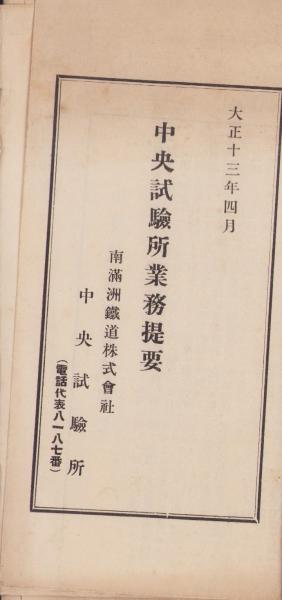 大正十三年四月
中央試驗所業務提要
南滿洲鐵道株式會社
中央試驗所
（電話代表八一八七番）